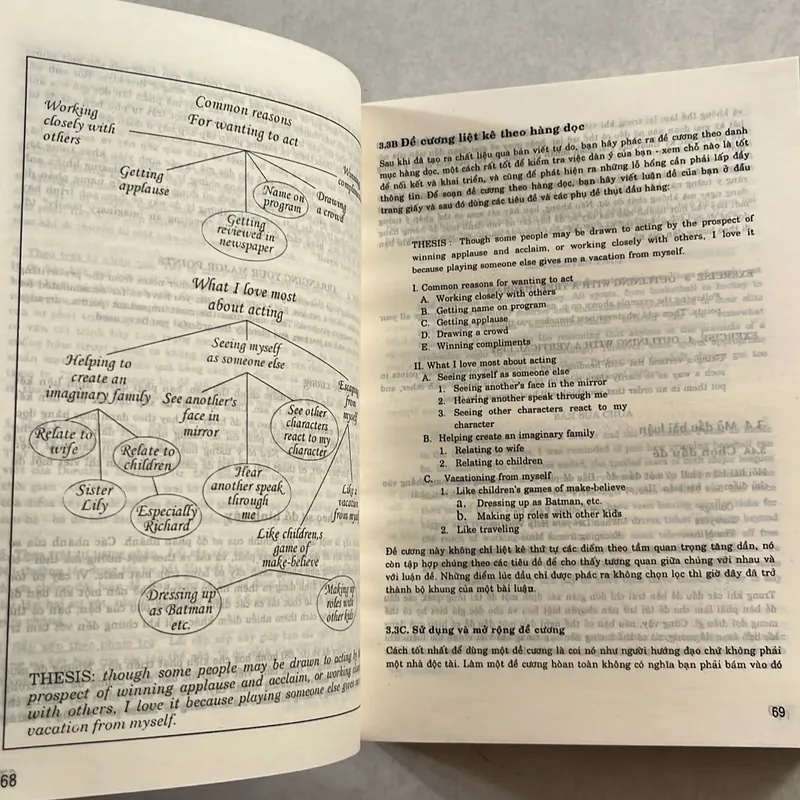 Common reasons
For wanting to act
Working
closely with
others
Getting
applause
Name on
program
Drawing
a crowd
Getting
reviewed in
newspaper
What I love most
about acting
Helping to
create an
imaginary family
Seeing myself
as someone else
Escaping
from
myself
See another's
face in
mirror
See other
characters
react to my
character
Relate to
wife
Relate to
children
Sister
Lily
Especially
Richard
Hear
another speak
through
me
Like a
vacation
from
Like children,s
game of
make-believe
Dressing up
as Batman
etc.
Making up
roles with
other kids
THESIS: though some people may be drawn to acting by
prospect of winning applause and acclaim, or working
with others, I love it because playing someone else gives
vacation from myself.
68
3.3B Đề cương liệt kê theo hàng dọc
Sau khi đã tạo ra chất liệu qua bản viết tự do, bạn hãy phác ra đề cương theo danh
mục hàng dọc, một cách rất tốt để kiểm tra việc dàn ý của bạn - xem chỗ nào là tốt
để nối kết và khai triển, và cũng để phát hiện ra những lỗ hổng cần phải lấp đầy
thông tin. Để soạn đề cương theo hàng dọc, bạn hãy viết luận đề của bạn ở đầu
trang giấy và sau đó dùng các tiêu đề và các phụ đề thụt đầu hàng:
THESIS : Though some people may be drawn to acting by the prospect of
winning applause and acclaim, or working closely with others, I love it
because playing someone else gives me a vacation from myself.
I. Common reasons for wanting to act
A. Working closely with others
B. Getting name on program
C. Getting applause
D. Drawing a crowd
E. Winning compliments
II. What I love most about acting
A. Seeing myself as someone else
1. Seeing another's face in the mirror
2. Hearing another speak through me
3. Seeing other characters react to my
character
B. Helping create an imaginary family
1. Relating to wife
2. Relating to children
C. Vacationing from myself
1. Like children's games of make-believe
a. Dressing up as Batman, etc.
b. Making up roles with other kids
2. Like traveling
Đề cương này không chỉ liệt kê thứ tự các điểm theo tầm quan trọng tăng dần, nó
còn tập hợp chúng theo các tiêu đề để cho thấy tương quan giữa chúng với nhau và
với luận đề. Những điểm lúc đầu chỉ được phác ra không chọn lọc thì giờ đây đã trở
thành bộ khung của một bài luận.
3.3C. Sử dụng và mở rộng đề cương
Cách tốt nhất để dùng một đề cương là coi nó như người hướng đạo chứ không phải
một nhà độc tài. Làm một đề cương hoàn toàn không có nghĩa bạn phải bám vào đó
69